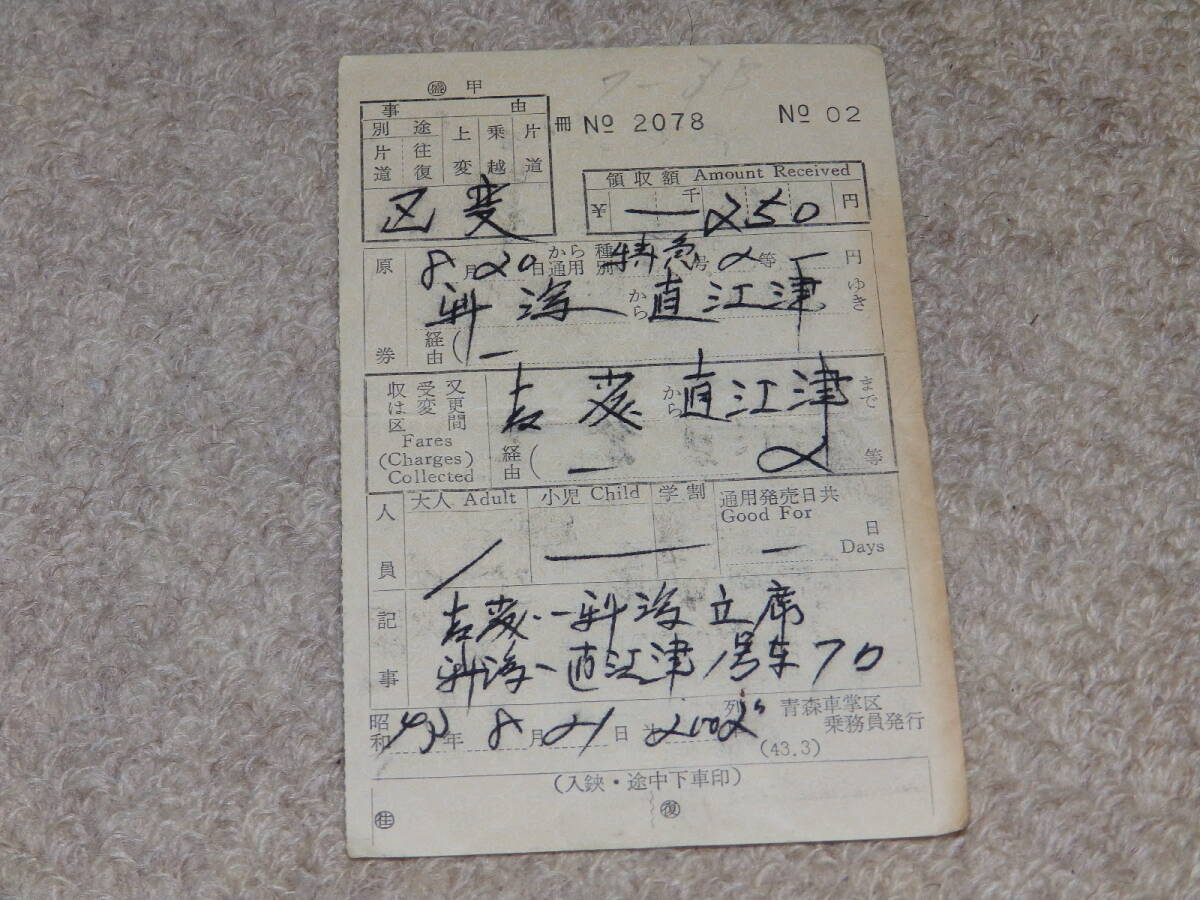 ㊝ 甲
事由
別途片道 往復 上変 乗越 片道
区変
冊 № 2078 № 02
領収額 Amount Received
¥ 千 ー250 円
原券
8月20日から通用 種別 特急 号 2等 ー円
新潟から直江津ゆき
経由( ー
収受又は変更区間
Fares
(Charges)
Collected
から直江津まで
経由( ー 2等
人員
大人 Adult 小児 Child 学割 通用発売日共
Good For
/ ー ー 日
Days
記事
新潟 立席
新潟ー直江津 1号车 7D
昭和43年8月21日 2002 列 青森車掌区
乗務員発行
(43.3)
(入鋏・途中下車印)
㊟ ㊝